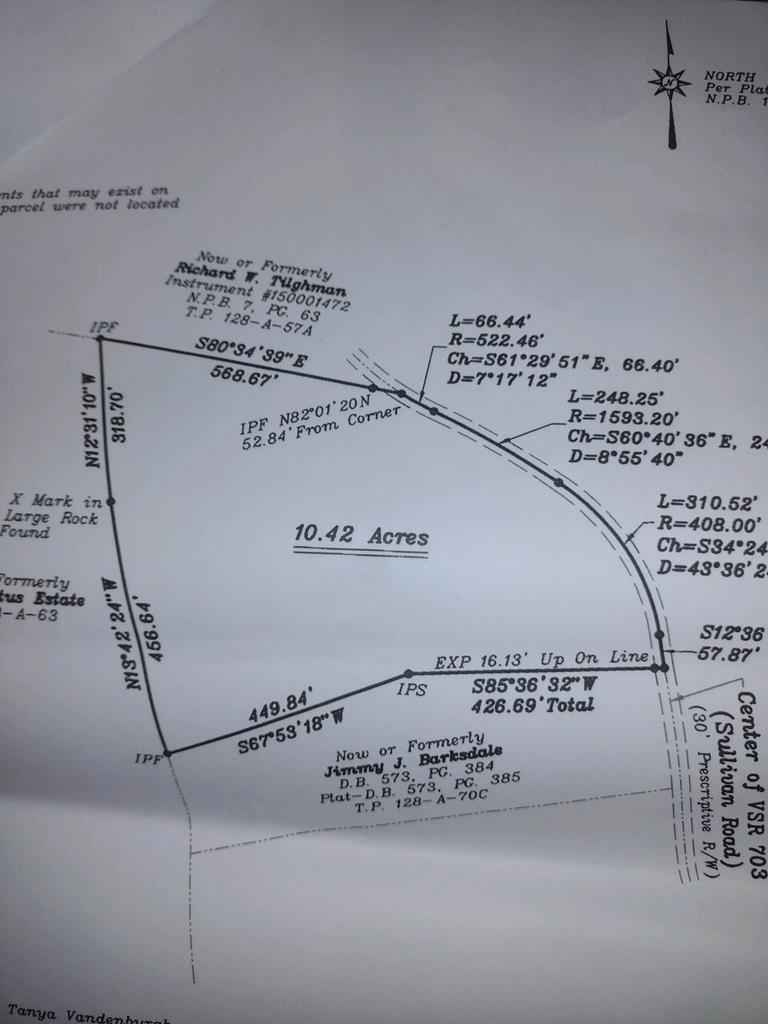 NORTH
Per Plat
N.P.B. 1
nts that may exist on
parcel were not located
Now or Formerly
Richard W. Tilghman
Instrument #150001472
N.P.B. 7, PG. 63
T.P. 128-A-57A
IPF
S80°34'39"E
568.67'
IPF N82°01'20N
52.84' From Corner
L=66.44'
R=522.46'
Ch=S61°29'51"E, 66.40'
D=7°17'12"
L=248.25'
R=1593.20'
Ch=S60°40'36"E, 24
D=8°55'40"
L=310.52'
R=408.00'
Ch=S34°24
D=43°36'2
N12°31'10"W
318.70'
X Mark in
Large Rock
Found
10.42 Acres
Formerly
tus Estate
-A-63
N13°42'24"W
456.64'
S12°36
57.87'
EXP 16.13' Up On Line
S85°36'32"W
426.69' Total
IPS
449.84'
S67°53'18"W
IPF
Now or Formerly
Jimmy J. Barksdale
D.B. 573, PG. 384
Plat-D.B. 573, PG. 385
T.P. 128-A-70C
Center of VSR 703
(Sullivan Road)
(30' Prescriptive R/W)
Tanya Vandenburgh